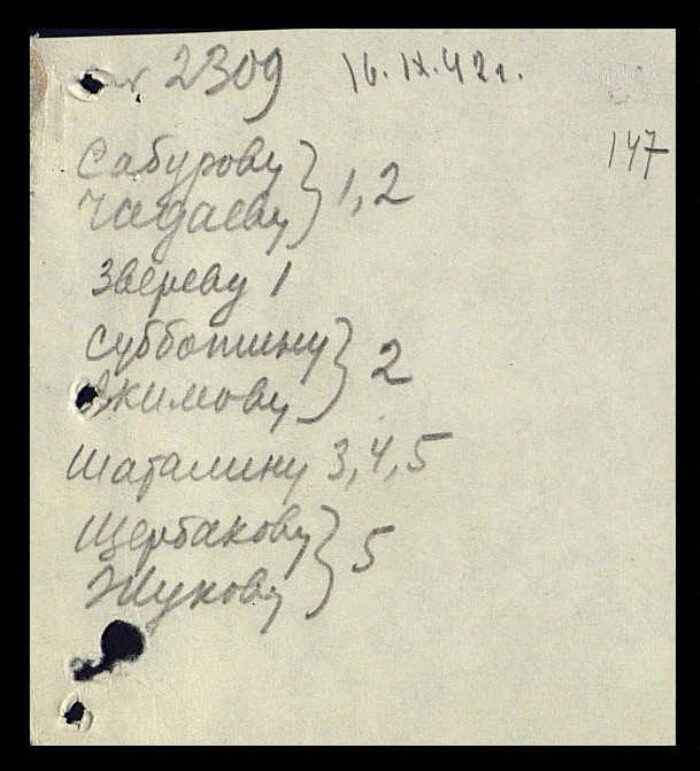 2309 16.IX.42г.
147
Сабурову
Чадаеву } 1, 2
Звереву 1
Субботину
Акимову } 2
Шаталину 3, 4, 5
Щербакову
Жукову } 5